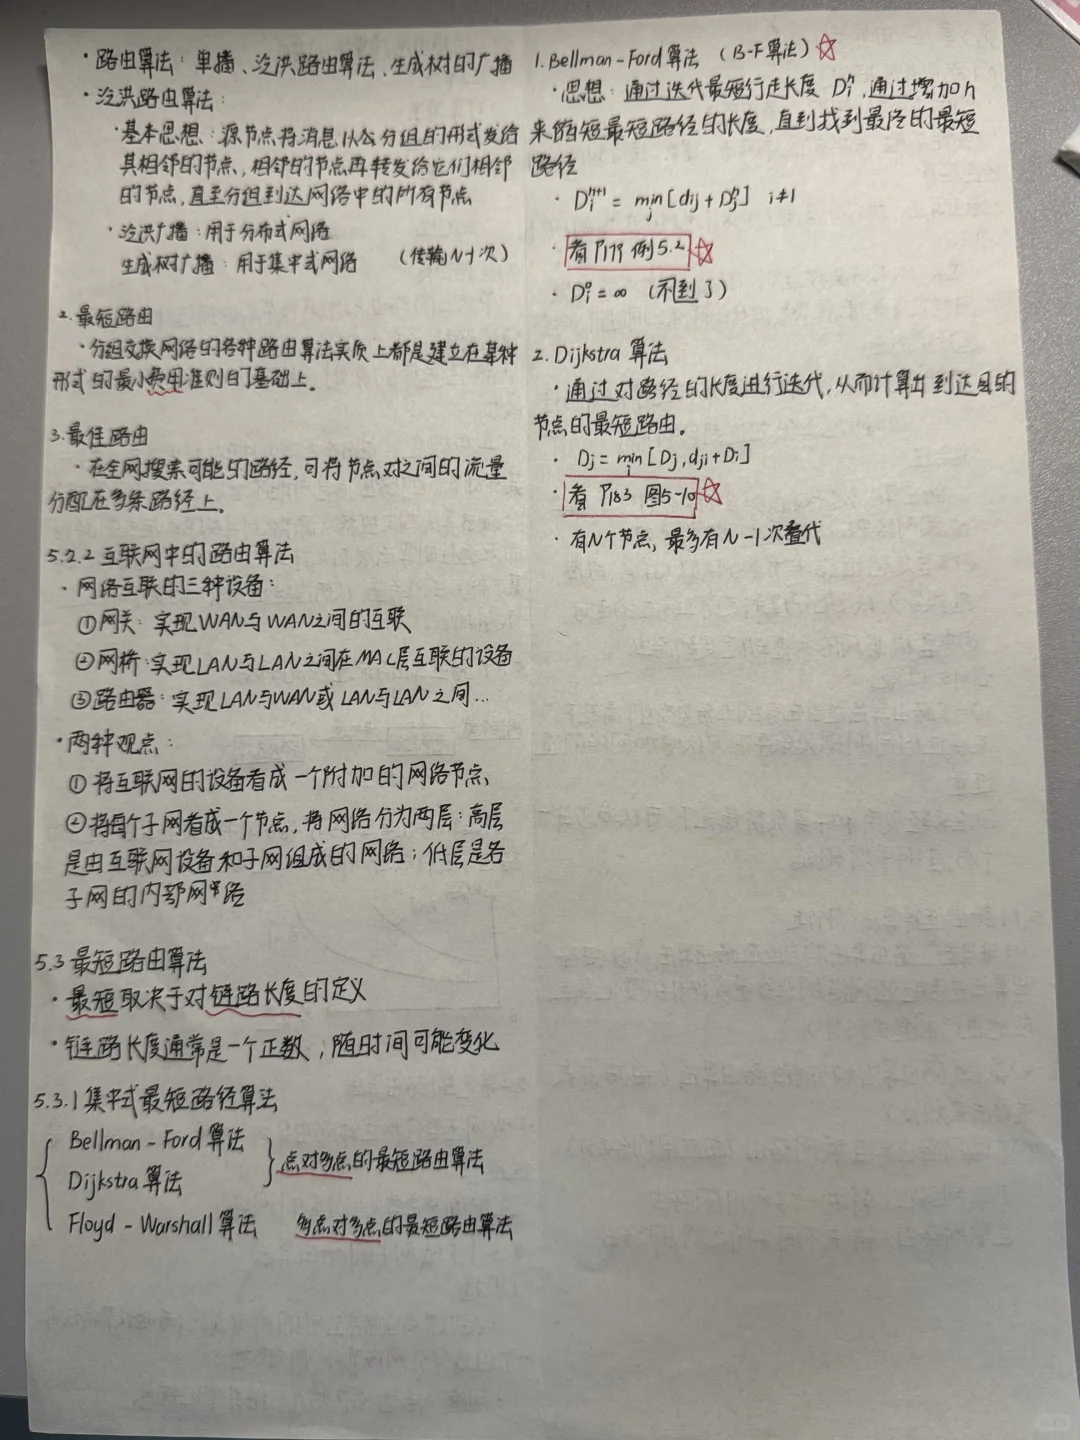 ·路由算法：单播、泛洪路由算法、生成树的广播
·泛洪路由算法：
·基本思想：源节点将消息以分组的形式发给
其相邻的节点，相邻的节点再转发给它们相邻
的节点，直至分组到达网络中的所有节点
·泛洪广播：用于分布式网络
生成树广播：用于集中式网络 （传输N-1次）
2.最短路由
·分组交换网络的各种路由算法实质上都是建立在某种
形式的最小费用准则的基础上。
3.最佳路由
·在全网搜索可能的路径，可将节点对之间的流量
分配在多条路径上。
5.2.2 互联网中的路由算法
·网络互联的三种设备：
①网关：实现WAN与WAN之间的互联
②网桥：实现LAN与LAN之间在MAC层互联的设备
③路由器：实现LAN与WAN或LAN与LAN之间...
·两种观点：
①将互联网的设备看成一个附加的网络节点
②将每个子网看成一个节点，将网络分为两层：高层
是由互联网设备和子网组成的网络；低层是各
子网的内部网络
5.3 最短路由算法
·最短取决于对链路长度的定义
·链路长度通常是一个正数，随时间可能变化
5.3.1 集中式最短路径算法
Bellman-Ford算法
Dijkstra算法
点对多点的最短路由算法
Floyd-Warshall算法 多点对多点的最短路由算法
1.Bellman-Ford算法 （B-F算法）☆
·思想：通过迭代最短行走长度 Dᵢʰ，通过增加h
来缩短最短路径的长度，直到找到最终的最短
路径
·Dᵢʰ⁺¹ = min_j[dij + Djʰ] i≠1
·看P179 例5.2 ☆
·Dᵢ⁰ = ∞ （不到了）
2. Dijkstra 算法
·通过对路径的长度进行迭代，从而计算出到达目的
节点的最短路由。
·Dj = min_i[Dj, dji + Di]
·看 P183 图5-10 ☆
·有N个节点，最多有N-1次叠代